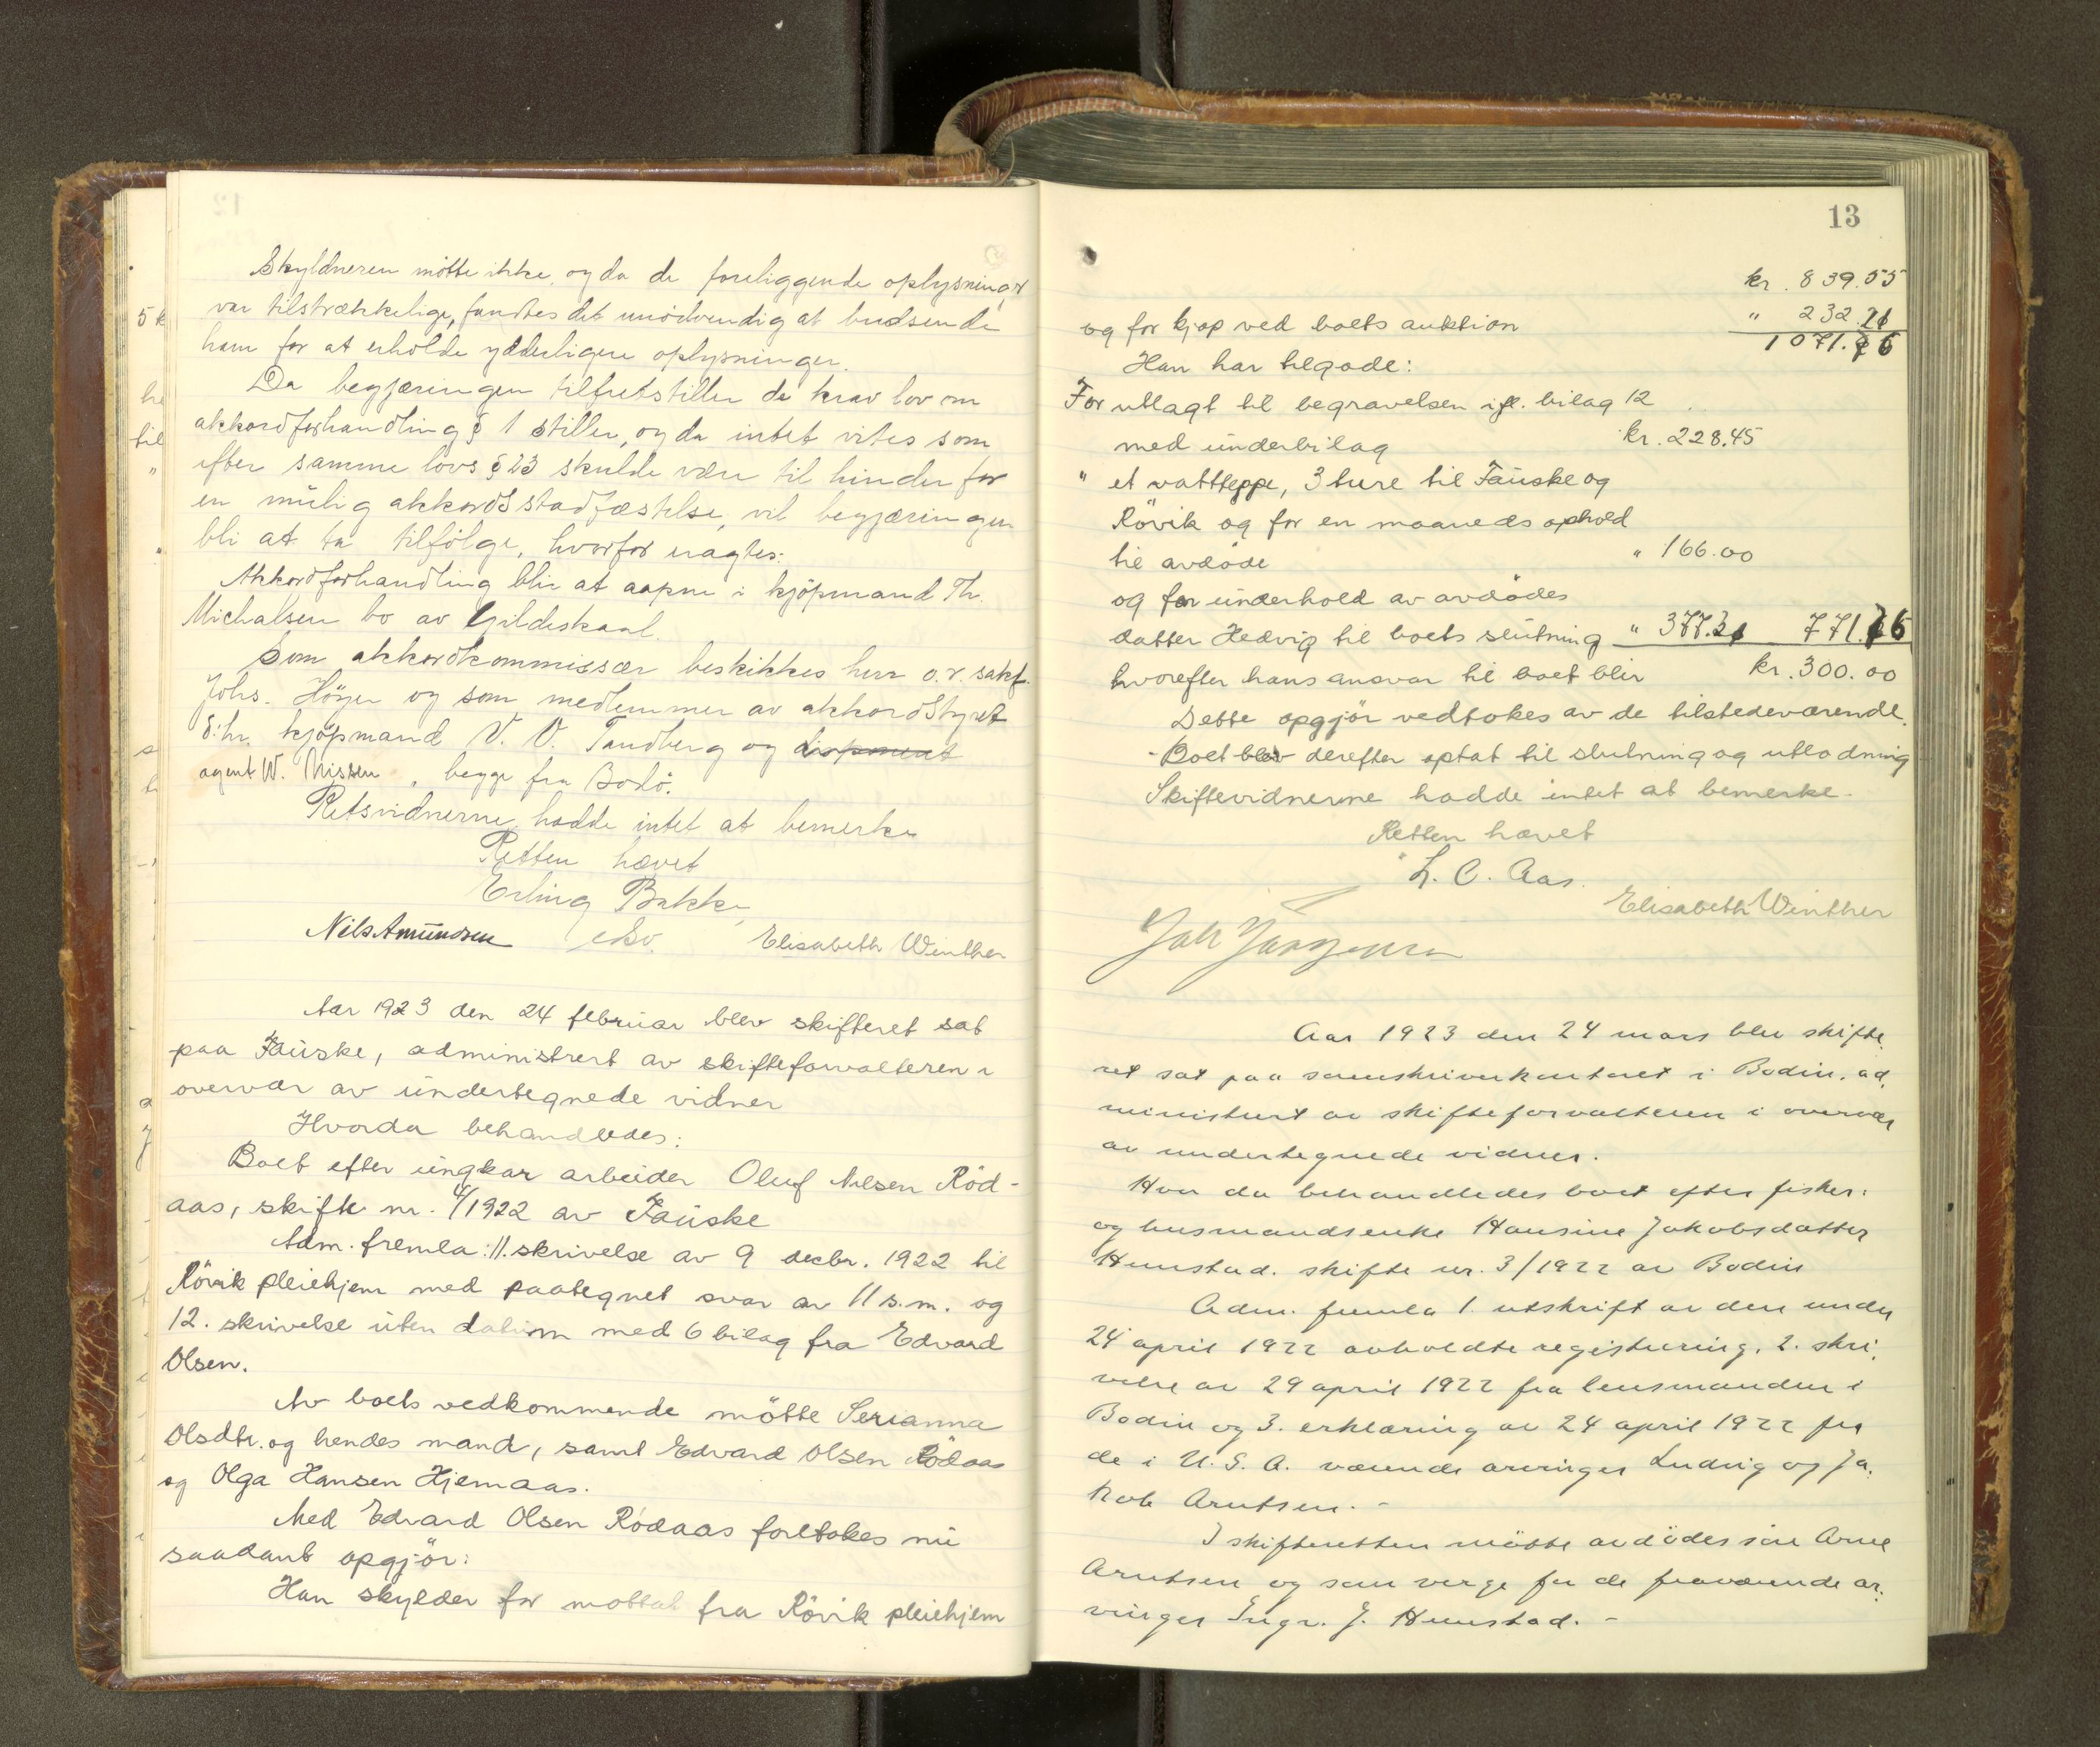 Skyldneren mötte ikke, og da de foreliggende oplysninger
var tilstrækkelige, fandtes det unödvendig at budsende
ham for at erholde ydderligere oplysninger.
Da begjæringen tilfretsstiller de krav lov om
akkordforhandling § 1 stiller, og da intet vites som
efter samme lovs § 23 skulde være til hinder for
en mulig akkordsstadfæstelse, vil begjæringen
bli at ta tilfölge, hvorfor eragtes:
Akkordforhandling blir at aapne i kjöpmand Th.
Michalsen bo av Gildeskaal.
Som akkordkommissær beskikkes herr o.r. sakf.
Johs. Höyer og som medlemmer av akkordstyret
d'hr. kjöpmand V. O. Tandberg og disponent
agent W. Nissen, begge fra Bodö.
Retsvidnerne hadde intet at bemerke
Retten hævet
Erling Bakke
Nils Amundsen cbv. Elisabeth Winther
Aar 1923 den 24 februar blev skifteret sat
paa Fauske, administrert av skifteforvalteren i
overvær av undertegnede vidner
Hvorda behandledes:
Boet efter ungkar arbeider Oluf Nilsen Röd-
aas, skifte nr. 4/1922 av Fauske
Adm. fremla: 11. skrivelse av 9 decbr. 1922 til
Rövik pleiehjem med paategnet svar av 11 s.m. og
12. skrivelse uten datum med 6 bilag fra Edvard
Olsen.
Av boets vedkommende mötte Serianna
Olsdtr. og hendes mand, samt Edvard Olsen Rödaas
og Olga Hansen Hjemaas.
Med Edvard Olsen Rödaas foretokes nu
saadant opgjör:
Han skylder for mottat fra Rövik pleiehjem
13
kr. 839.55
og for kjøp ved boets auktion " 232.21
1071.76
Han har tilgode:
For utlagt til begravelsen ifl. bilag 12
med underbilag kr. 228.45
" et vattteppe, 3 ture til Fauske og
Rövik og for en maaneds ophold
til avdöde " 166.00
og for underhold av avdödes
datter Hedvig til boets slutning " 377.31 771.76
hvorefter hans ansvar til boet blir kr. 300.00
Dette opgjör vedtokes av de tilstedeværende.
- Boet blev derefter optat til slutning og utlodning
Skiftevidnerne hadde intet at bemerke.
Retten hævet
L. C. Aas.
Elisabeth Winther
Aar 1923 den 24 mars blev skifte
ret sat paa sorenskriverkontoret i Bodin, ad
ministrert av skifteforvalteren i overvær
av undertegnede vidner.
Hvor da behandledes boet efter fisker:
og husmandsenke Hansine Jakobsdatter
Hunstad. skifte nr. 3/1922 av Bodin
Adm. fremla 1. utskrift av den under
24 april 1922 avholdte registrering, 2. skri
velse av 29 april 1922 fra lensmanden i
Bodin og 3. erklæring av 24 april 1922 fra
de i U.S.A. værende arvinger Ludvig og Ja
kob Arntsen. -
I skifteretten mötte avdödes sön Arne
Arntsen og som verge for de fraværende ar
vinger Ingv. J. Hunstad. -